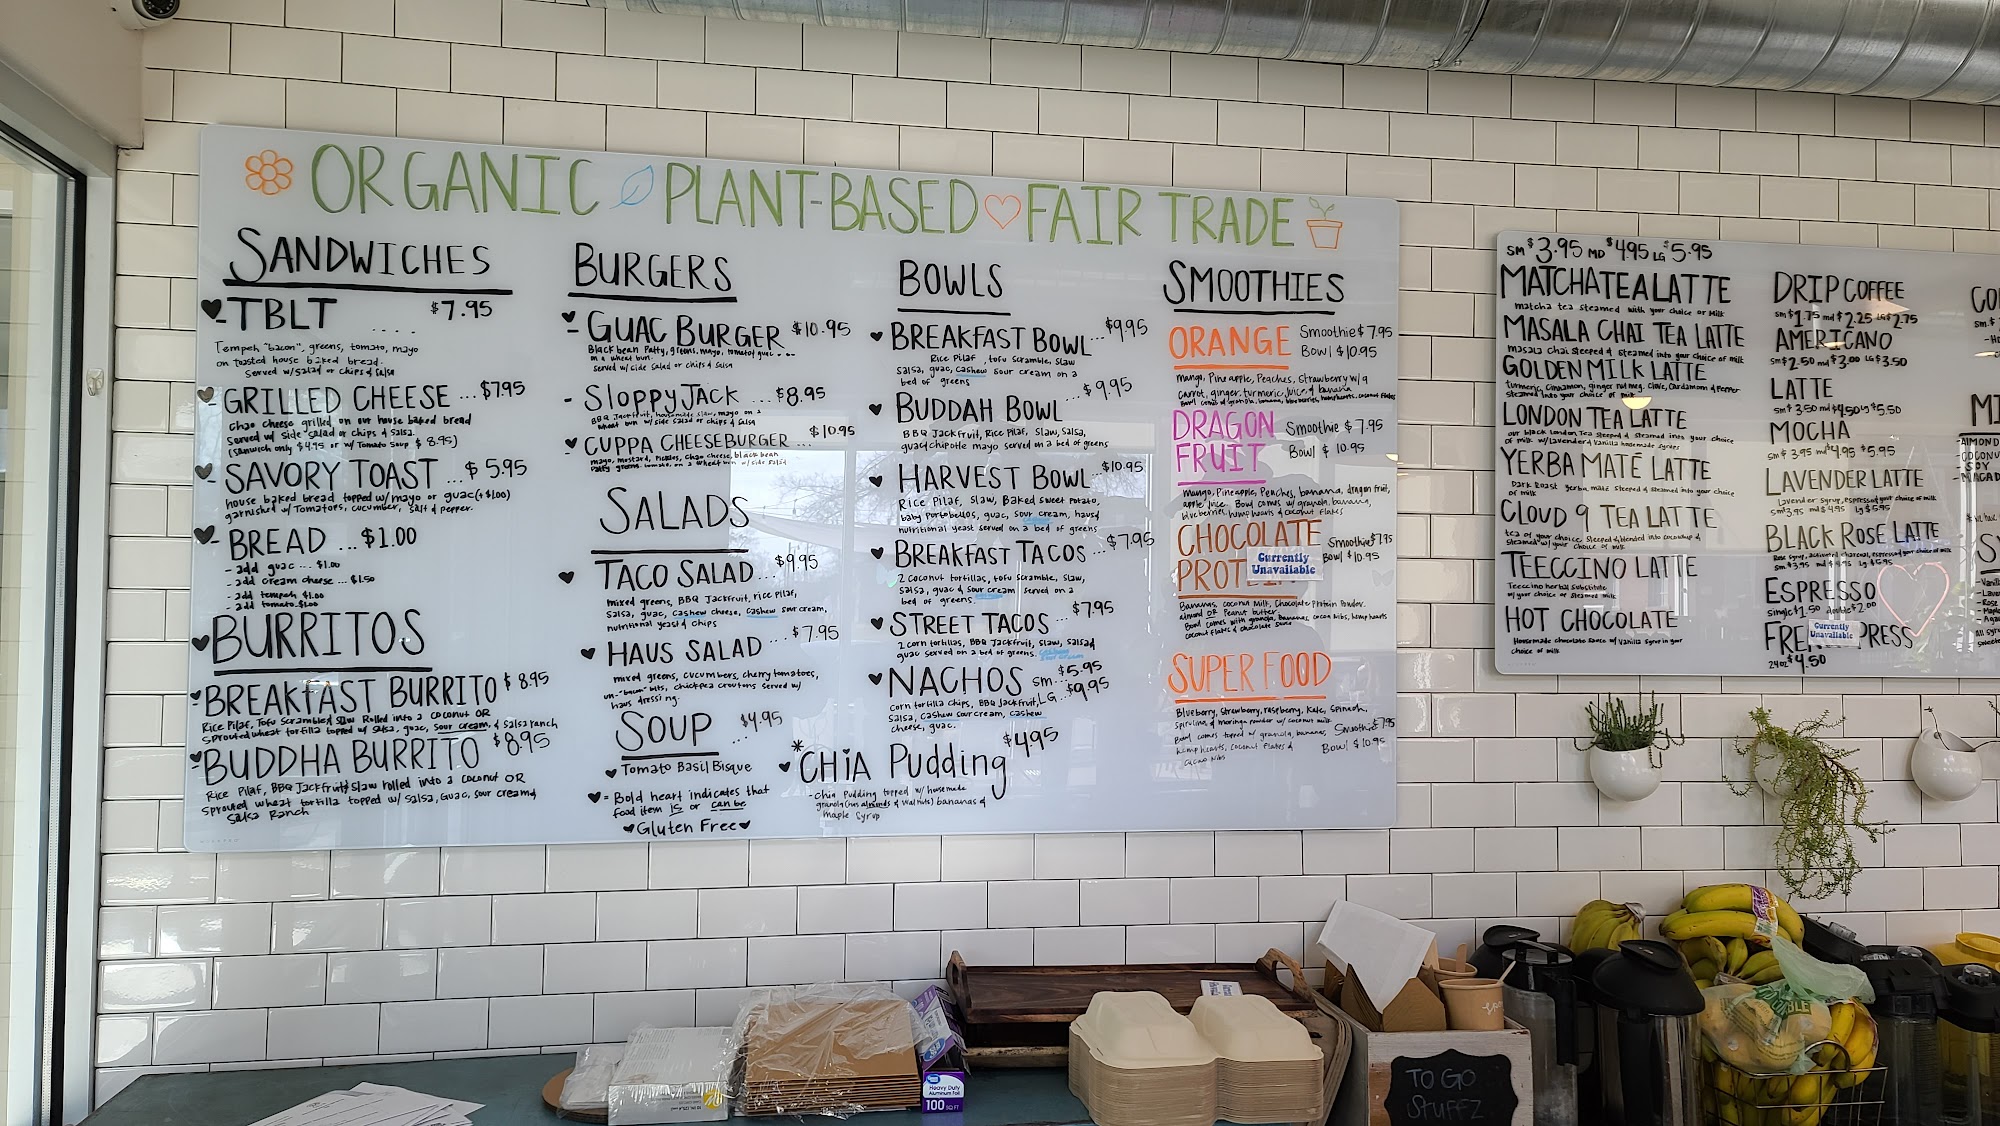 ORGANIC PLANT-BASED FAIR TRADE
SANDWICHES
-TBLT .... $7.95
Tempeh "bacon", greens, tomato, mayo
on toasted house baked bread.
Served w/salad or chips & salsa
- GRILLED CHEESE ... $7.95
Chao cheese grilled on our house baked bread
Served w/ side salad or chips & salsa.
(Sandwich only $4.95 or w/ Tomato Soup $8.95)
- SAVORY TOAST ... $5.95
house baked bread topped w/mayo or guac(+$1.00)
garnished w/ Tomatoes, cucumber, Salt & pepper.
- BREAD ... $1.00
- add guac ... $1.00
- add cream cheese ... $1.50
- add tempeh $1.00
- add tomato $1.00
BURRITOS
BREAKFAST BURRITO $8.95
Rice Pilaf, Tofu Scramble & Slaw Rolled into a coconut OR
Sprouted wheat tortilla topped w/ salsa, guac, sour cream, & salsa ranch
BUDDHA BURRITO $8.95
Rice Pilaf, BBQ Jackfruit & Slaw rolled into a coconut OR
sprouted wheat tortilla topped w/ salsa, guac, sour cream &
Salsa Ranch
BURGERS
- GUAC BURGER $10.95
Black bean Patty, greens, mayo, tomato & guac ...
on a wheat bun.
Served w/ side salad or chips & salsa
- SLOPPY JACK ... $8.95
BBQ Jackfruit, housemade slaw, mayo on a
wheat bun w/ side salad or chips & salsa
- CUPPA CHEESEBURGER ... $10.95
mayo, mustard, pickles, chao cheese, black bean
patty, greens, tomato, on a wheat bun w/ side salad
SALADS
TACO SALAD ... $9.95
mixed greens, BBQ Jackfruit, rice pilaf,
salsa, guac, cashew cheese, cashew sour cream,
nutritional yeast & chips
HAUS SALAD ... $7.95
mixed greens, cucumbers, cherry tomatoes,
un-"bacon" bits, chickpea croutons served w/
haus dressing.
SOUP ... $4.95
Tomato Basil Bisque
= Bold heart indicates that
food item IS or can be
Gluten Free
BOWLS
BREAKFAST BOWL ... $9.95
Rice Pilaf, tofu scramble, slaw
salsa, guac, cashew sour cream on a
bed of greens
BUDDAH BOWL ... $9.95
BBQ Jackfruit, Rice Pilaf, Slaw, Salsa,
guac & chipotle mayo served on a bed of greens
HARVEST BOWL ... $10.95
Rice Pilaf, Slaw, Baked sweet potato,
baby portobellos, guac, sour cream, haus &
nutritional yeast served on a bed of greens
BREAKFAST TACOS ... $7.95
2 coconut tortillas, tofu scramble, slaw,
salsa, guac & sour cream served on a
bed of greens
STREET TACOS ... $7.95
2 corn tortillas, BBQ Jackfruit, slaw, salsa &
guac served on a bed of greens.
NACHOS SM ... $5.95
LG ... $9.95
corn tortilla chips, BBQ Jackfruit,
salsa, cashew sour cream, cashew
cheese, guac.
* CHIA Pudding $4.95
- Chia Pudding topped w/ housemade
granola (has almonds & walnuts) bananas &
Maple Syrup
SMOOTHIES
ORANGE Smoothie $7.95
Bowl $10.95
Mango, Pineapple, Peaches, Strawberry w/ a
carrot, ginger, turmeric, juice, & banana
Bowl comes w/ granola, banana, blueberries, hemp hearts, coconut flakes
DRAGON FRUIT Smoothie $7.95
Bowl $10.95
Mango, Pineapple, Peaches, banana, dragon fruit,
apple juice. Bowl comes w/ granola, banana,
blueberries, hemp hearts & coconut flakes
CHOCOLATE Smoothie $7.95
Bowl $10.95
Currently
Unavailable
Bananas, coconut milk, chocolate protein powder.
almond OR Peanut butter.
Bowl comes with granola, bananas, cocoa nibs, hemp hearts
coconut flakes & chocolate sauce
SUPER FOOD
Blueberry, Strawberry, raspberry, Kale, Spinach,
Spirulina, & moringa powder w/ coconut milk.
Smoothie $7.95
Bowl comes topped w/ granola, bananas,
hemp hearts, coconut flakes &
cacao nibs
Bowl $10.95
SM $3.95 MD $4.95 LG $5.95
MATCHA TEA LATTE
matcha tea steamed with your choice of milk
MASALA CHAI TEA LATTE
masala chai steeped & steamed into your choice of milk
GOLDEN MILK LATTE
turmeric, cinnamon, ginger, nutmeg, clove, cardamom & pepper
steamed into your choice of milk
LONDON TEA LATTE
our black london tea steeped & steamed into your choice
of milk w/ lavender & vanilla homemade syrups
YERBA MATÉ LATTE
Dark Roast yerba maté steeped & steamed into your choice
of milk
CLOUD 9 TEA LATTE
tea of your choice, steeped & blended into coconut &
steamed w/ your choice of milk
TEECCINO LATTE
Teeccino herbal substitute
w/ your choice of steamed milk
HOT CHOCOLATE
Homemade chocolate sauce w/ vanilla syrup in your
choice of milk
DRIP COFFEE
sm $1.75 md $2.25 LG $2.75
AMERICANO
sm $2.50 md $3.00 LG $3.50
LATTE
sm $3.50 md $4.50 LG $5.50
MOCHA
sm $3.95 md $4.95 $5.95
LAVENDER LATTE
lavender syrup, espresso & your choice of milk
sm $3.95 md $4.95 lg $5.95
BLACK ROSE LATTE
Rose syrup, activated charcoal, espresso & your choice of milk
sm $3.95 md $4.95 lg $5.95
ESPRESSO
single $1.50 double $2.00
Currently
Unavailable
24oz $4.50
Heavy Duty
Aluminum Foil
100 SQ FT
TO GO
STUFFZ